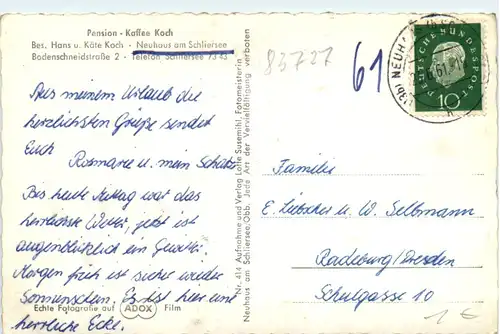 Pension - Kaffee Koch
Bes. Hans u. Käte Koch - Neuhaus am Schliersee
Bodenschneidstraße 2 - Telefon Schliersee 7343
Aus meinem Urlaub die
herzlichsten Grüße sendet
Euch
Rosmarie u. mein Schatz
Bis heute Mittag war das
herrlichste Wetter, jetzt ist
augenblicklich ein Gewitter.
Morgen früh ist sicher wieder
Sonnenschein. Es ist hier eine
herrliche Ecke.
Echte Fotografie auf ADOX Film
Nr. 414 Aufnahme und Verlag Lotte Susemihl, Fotomeisterin
Neuhaus am Schliersee/Obb. Jede Art der Vervielfältigung verboten
83727
61
DEUTSCHE BUNDESPOST
10
(13b) NEUHAUS
61
Familie
E. Liebscher u. W. Selbmann
Radeburg/Dresden
Schulgasse 10
1 €